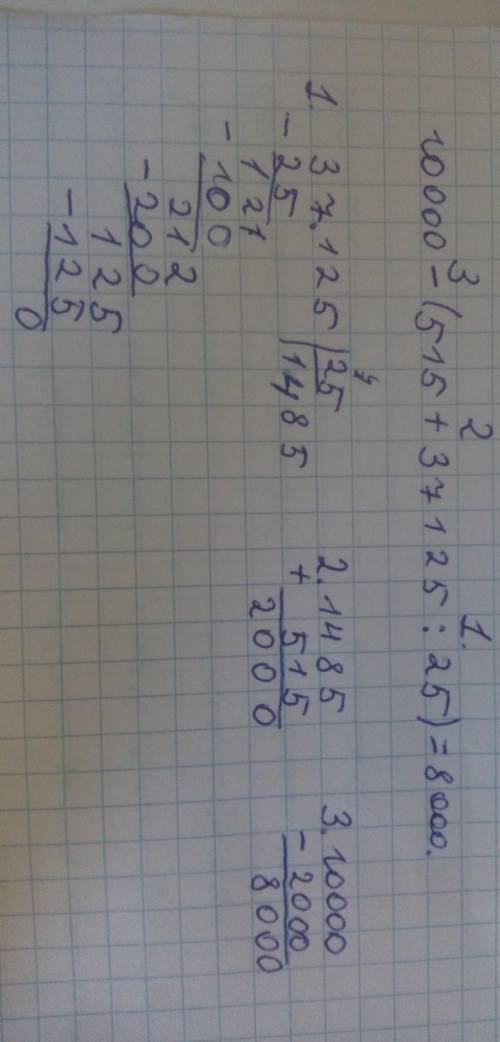 3 2 1.
10000 - (515 + 37125 : 25) = 8000.
1. 37.125 | 25
- 25 | 1485
121
- 100
212
- 200
125
- 125
0
2. 1485
+ 515
2000
3. 10000
- 2000
8000